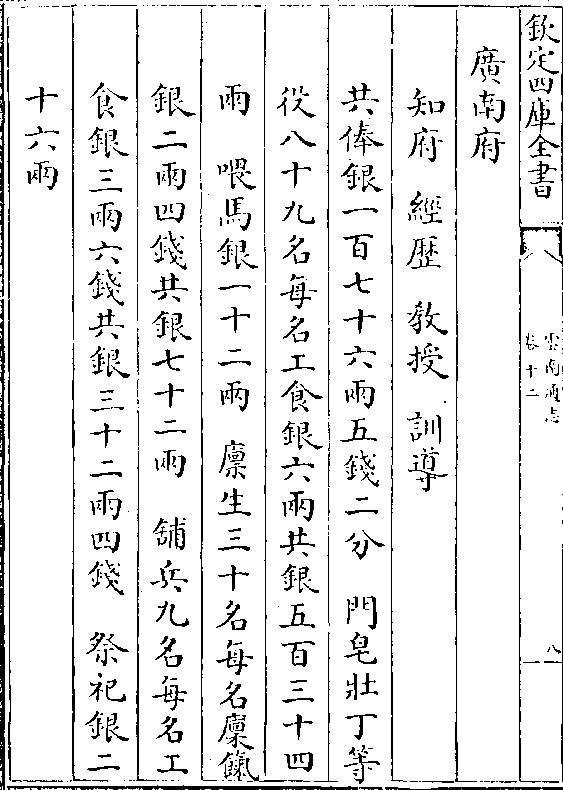 欽定四庫全書
雲南通志
卷十二
八
廣南府
知府 經歷 教授 訓導
共俸銀一百七十六兩五錢二分 門皂壯丁等
役八十九名每名工食銀六兩共銀五百三十四
兩 喂馬銀一十二兩 廩生三十名每名廩餼
銀二兩四錢共銀七十二兩 舖兵九名每名工
食銀三兩六錢共銀三十二兩四錢 祭祀銀二
十六兩